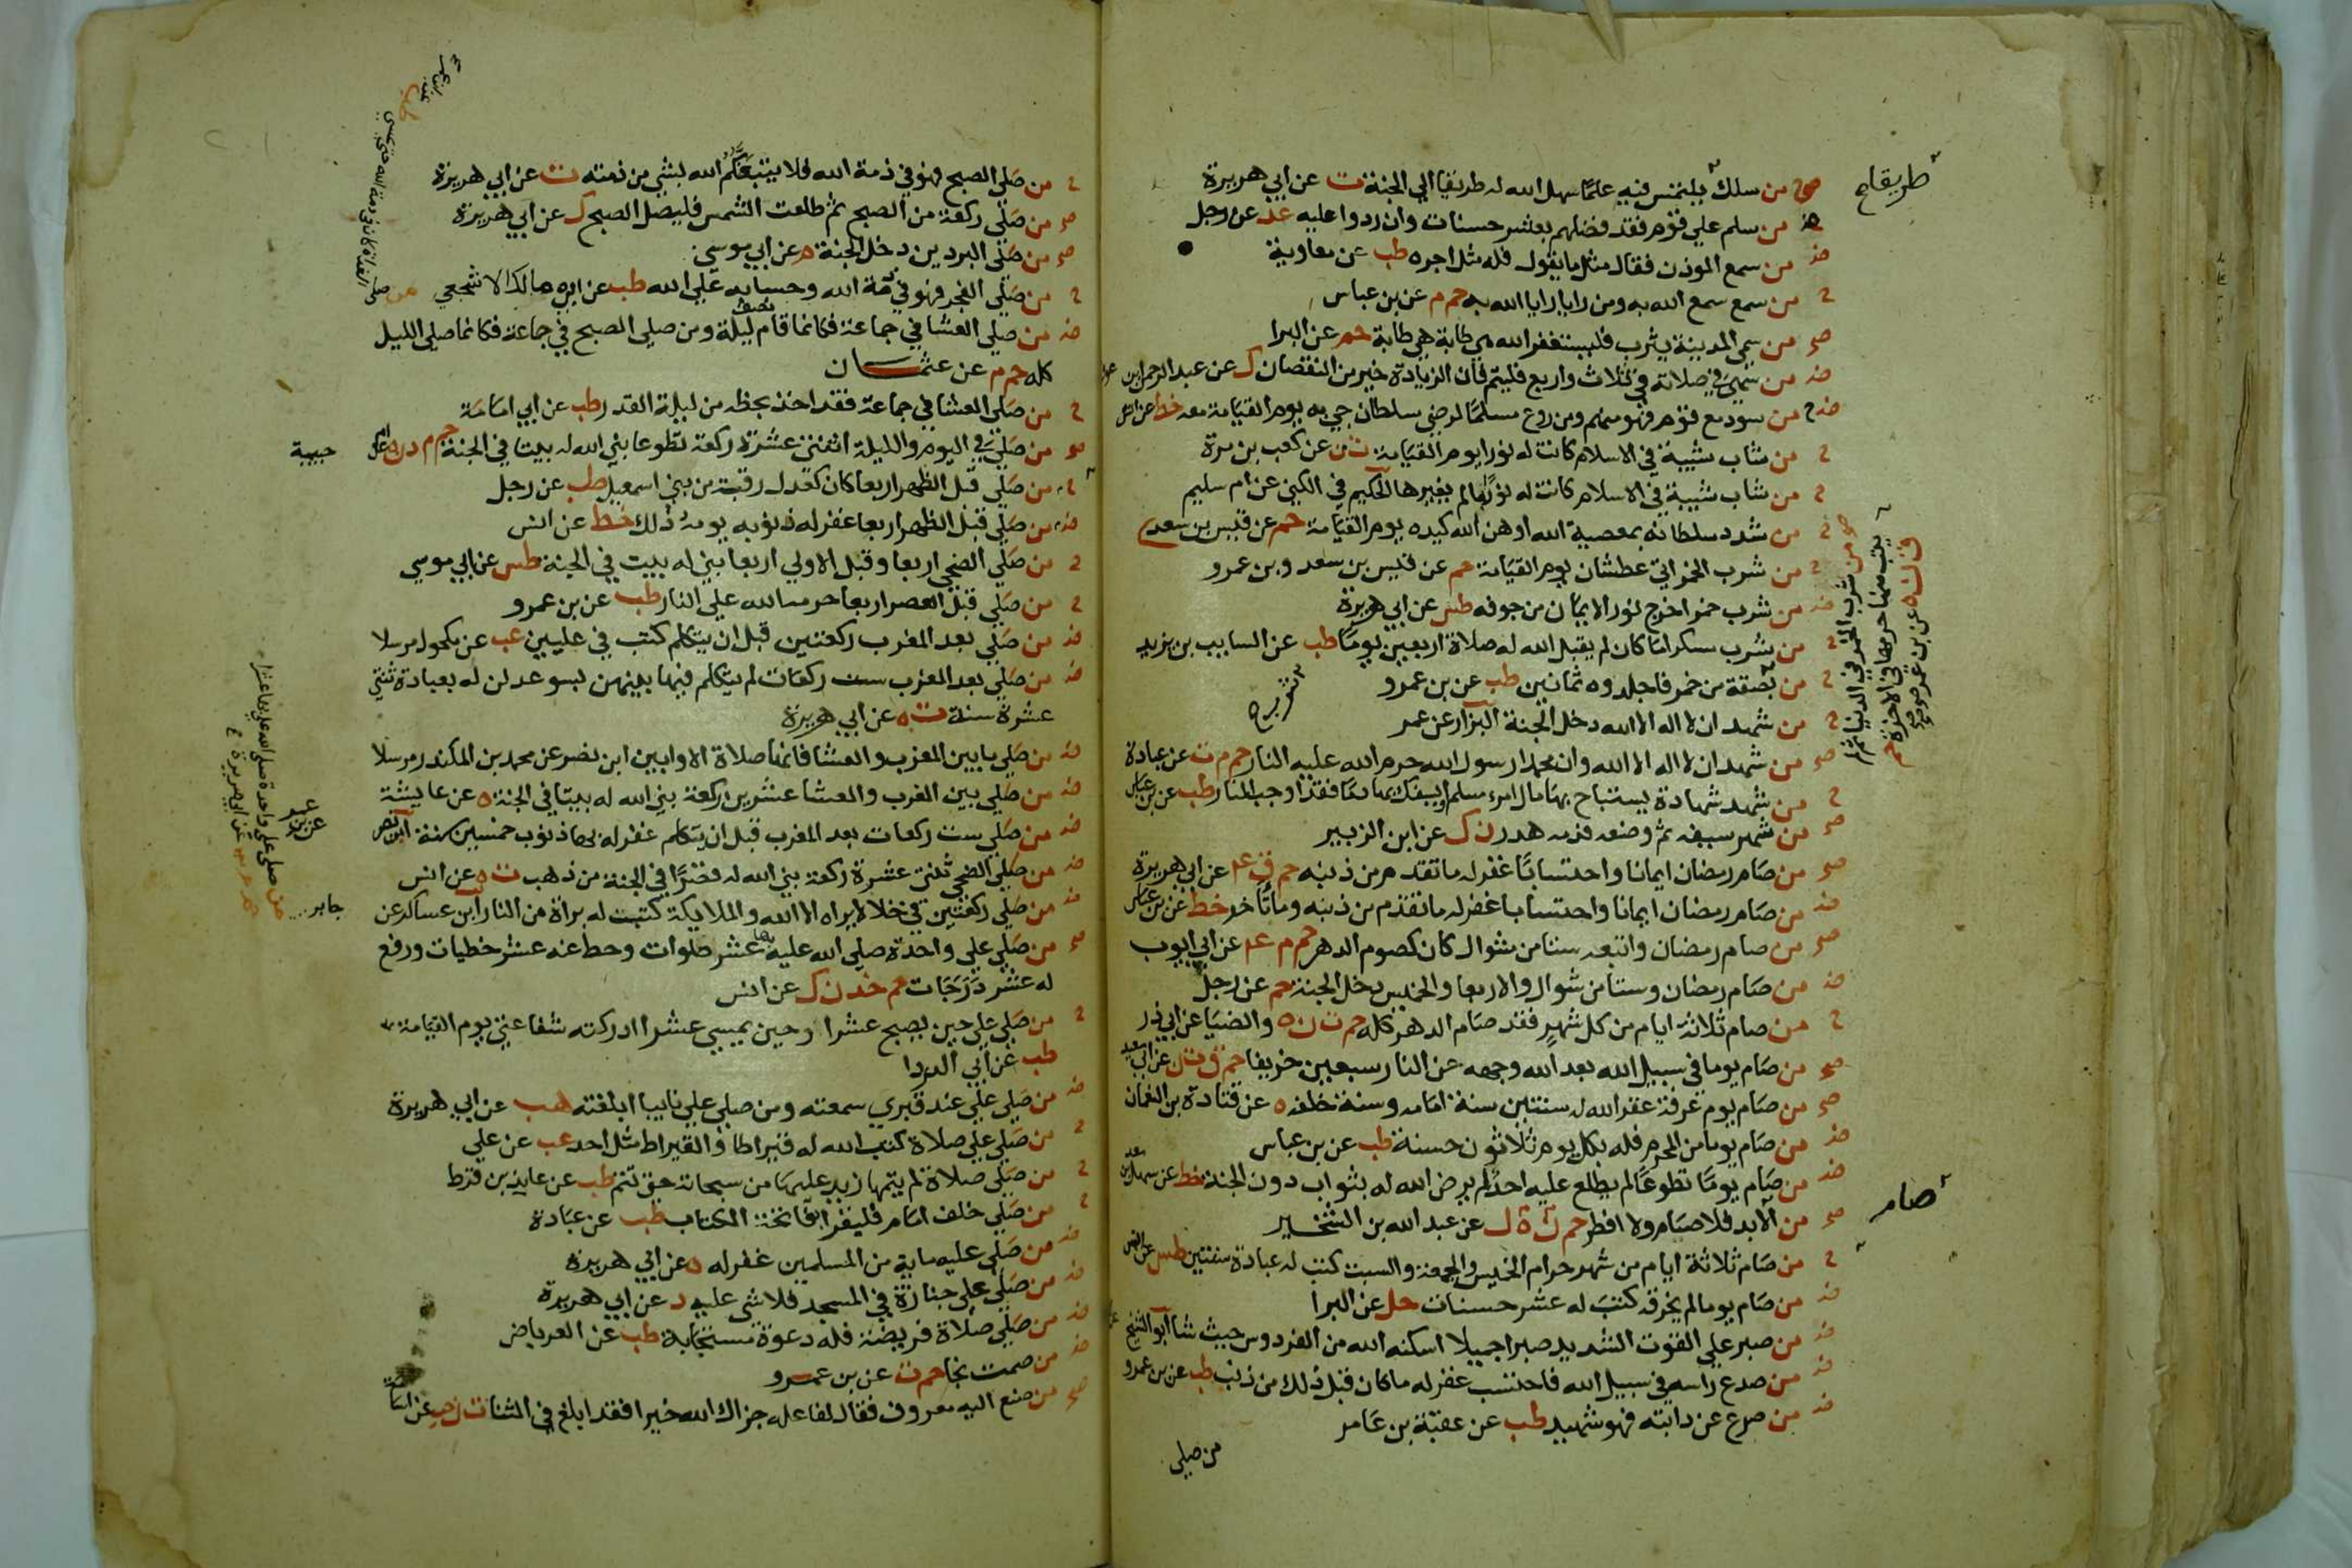 طريقا صح
صح من سلك يلتمس فيه علما سهل الله له طريقا الي الجنة ت عن ابي هريرة
ض من سلم علي قوم فقد فضلهم بعشر حسنات وان ردوا عليه عد عن رجل
ض من سمع الموذن فقال مثل ما يقول فله مثل اجره طب عن معاوية
ح من سمع سمع الله به ومن رايا رايا الله به حم م عن بن عباس
صح من سمي المدينة يثرب فليستغفر الله هي طابة هي طابة حم عن البرا
ض من سهي في صلاته في ثلاث واربع فليتم فان الزيادة خير من النقصان ك عن عبد الرحمن بن عوف
ض من سود مع قوم فهو منهم ومن روع مسلما لرضي سلطان جي به يوم القيامة معه خط عن انس
ح من شاب شيبة في الاسلام كانت له نورا يوم القيامة ت ن عن كعب بن مرة
ح من شاب شيبة في الاسلام كانت له نورا ما لم يغيرها الحكيم في الكني عن ام سليم
ح من شدد سلطانه بمعصية الله اوهن الله كيده يوم القيامة حم عن قيس بن سعد
صح من شرب الخمر في الدنيا ثم لم
يتب منها حرمها في الاخرة حم
ق ن ه عن بن عمر صح
ح من شرب الخمر اتي عطشان يوم القيامة حم عن قيس بن سعد وبن عمرو
ض من شرب خمرا خرج نور الايمان من جوفه طس عن ابي هريرة
ح من شرب مسكرا ما كان لم يقبل الله له صلاة اربعين يوما طب عن السايب بن يزيد
ح من بصقة من خمر فاجلدوه ثمانين طب عن بن عمرو
شرب صح
ح من شهد ان لا اله الا الله دخل الجنة البزار عن عمر
صح من شهد ان لا اله الا الله وان محمدا رسول الله حرم الله عليه النار حم م ت عن عبادة
ح من شهد شهادة يستباح بها مال امرء مسلم او يسفك بها دما فقد اوجب النار طب عن بن عباس
صح من شهر سيفه ثم وضعه فدمه هدر ن ك عن ابن الزبير
صح من صام رمضان ايمانا واحتسابا غفر له ما تقدم من ذنبه حم ق ع عن ابي هريرة
ض من صام رمضان ايمانا واحتسابا غفر له ما تقدم من ذنبه وما تاخر خط عن بن عباس
صح من صام رمضان واتبعه ستا من شوال كان كصوم الدهر حم م ع عن ابي ايوب
ض من صام رمضان وستا من شوال والاربعا والخميس دخل الجنة حم عن رجل
ح من صام ثلاثة ايام من كل شهر فقد صام الدهر كله حم ت ن ه والضيا عن ابي ذر
صح من صام يوما في سبيل الله بعد الله وجهه عن النار سبعين خريفا حم ق ت ن عن ابي سعيد
صح من صام يوم عرفة غفر الله له سنتين سنة امامه وسنة خلفه ه عن قتادة بن النعمان
ض من صام يوما من المحرم فله بكل يوم ثلاثون حسنة طب عن بن عباس
ض من صام يوما تطوعا لم يطلع عليه احد لم يرض الله له بثواب دون الجنة خط عن سهل بن سعد
صام
صح من الابد فلا صام ولا افطر حم ن ه ك عن عبد الله بن الشخير
ح من صام ثلاثة ايام من شهر حرام الخميس والجمعة والسبت كتب له عبادة سنتين طس عن انس
ض من صام يوما لم يخرقه كتب له عشر حسنات حل عن البرا
ض من صبر علي القوت الشديد صبرا جميلا اسكنه الله من الفردوس حيث شا ابو الشيخ
ض من صدع راسه في سبيل الله فاحتسب غفر له ما كان قبل ذلك من ذنب طب عن بن عمرو
ض من صرع عن دابته فهو شهيد طب عن عقبة بن عامر
من صلي
ح من صلي الصبح فهو في ذمة الله فلا يتبعنكم الله بشي من ذمته ت عن ابي هريرة
صح من صلي ركعة من الصبح ثم طلعت الشمس فليصل الصبح ك عن ابي هريرة
صح من صلي البردين دخل الجنة م عن ابي موسي
ح من صلي الفجر فهو في ذمة الله وحسابه علي الله طب عن ابي مالك الاشجعي
من صلي الغداة كان في ذمة الله حتي يمسي طب عن بن عمر
ض من صلي العشا في جماعة فكانما قام نصف ليلة ومن صلي الصبح في جماعة فكانما صلي الليل
كله حم م عن عثمان
ح من صلي العشا في جماعة فقد اخذ بحظه من ليلة القدر طب عن ابي امامة
صح من صلي في اليوم والليلة اثنتي عشرة ركعة تطوعا بني الله له بيتا في الجنة حم م د ن ه عن ام
حبيبة
ح من صلي قبل الظهر اربعا كان كعدل رقبة من بني اسمعيل طب عن رجل
ض من صلي قبل الظهر اربعا غفر له ذنوبه يومه ذلك خط عن انس
ح من صلي الضحي اربعا وقبل الاولي اربعا بني له بيت في الجنة طس عن ابي موسي
ح من صلي قبل العصر اربعا حرمه الله علي النار طب عن بن عمرو
ض من صلي بعد المغرب ركعتين قبل ان يتكلم كتب في عليين عب عن مكحول مرسلا
ض من صلي بعد المغرب ست ركعات لم يتكلم فيما بينهن بسو عدلن له بعبادة ثنتي
عشرة سنة ت ه عن ابي هريرة
ض من صلي ما بين المغرب والعشا فانها صلاة الاوابين ابن نصر عن محمد بن المكندر مرسلا
ض من صلي بين المغرب والعشا عشرين ركعة بني الله له بيتا في الجنة ه عن عايشة
ض من صلي ست ركعات بعد المغرب قبل ان يتكلم غفر له بها ذنوب خمسين سنة ابن نصر
عن بن عمر
ض من صلي الضحي ثنتي عشرة ركعة بني الله له قصرا في الجنة من ذهب ت ه عن انس
ض من صلي ركعتين في خلا لا يراه الا الله والملايكة كتبت له براة من النار ابن عساكر عن
جابر
صح من صلي علي واحدة صلي الله عليه بها عشر صلوات وحط عنه عشر خطيات ورفع
له عشر درجات حم خد ن ك عن انس
من صلي علي واحدة صلي الله عليه بها عشرا
حم م عن ابي هريرة
ح من صلي علي حين يصبح عشرا وحين يمسي عشرا ادركته شفاعتي يوم القيامة
طب عن ابي الدردا
ض من صلي علي عند قبري سمعته ومن صلي علي نايبا ابلغته هب عن ابي هريرة
ح من صلي علي صلاة كتب الله له قيراطا والقيراط مثل احد عب عن علي
ح من صلي صلاة لم يتمها زيد عليها من سبحاته حتي تتم طب عن عايذ بن قرط
ح من صلي خلف امام فليقرا بفاتحة الكتاب طب عن عبادة
ض من صلي عليه ماية من المسلمين غفر له ه عن ابي هريرة
ض من صلي علي جنازة في المسجد فلا شي عليه د عن ابي هريرة
ض من صلي صلاة فريضة فله دعوة مستجابة طب عن العرباض
ض من صمت نجا حم ت عن بن عمرو
صح من صنع اليه معروف فقال لفاعله جزاك الله خيرا فقد ابلغ في الثنا ت ن حب عن اسامة